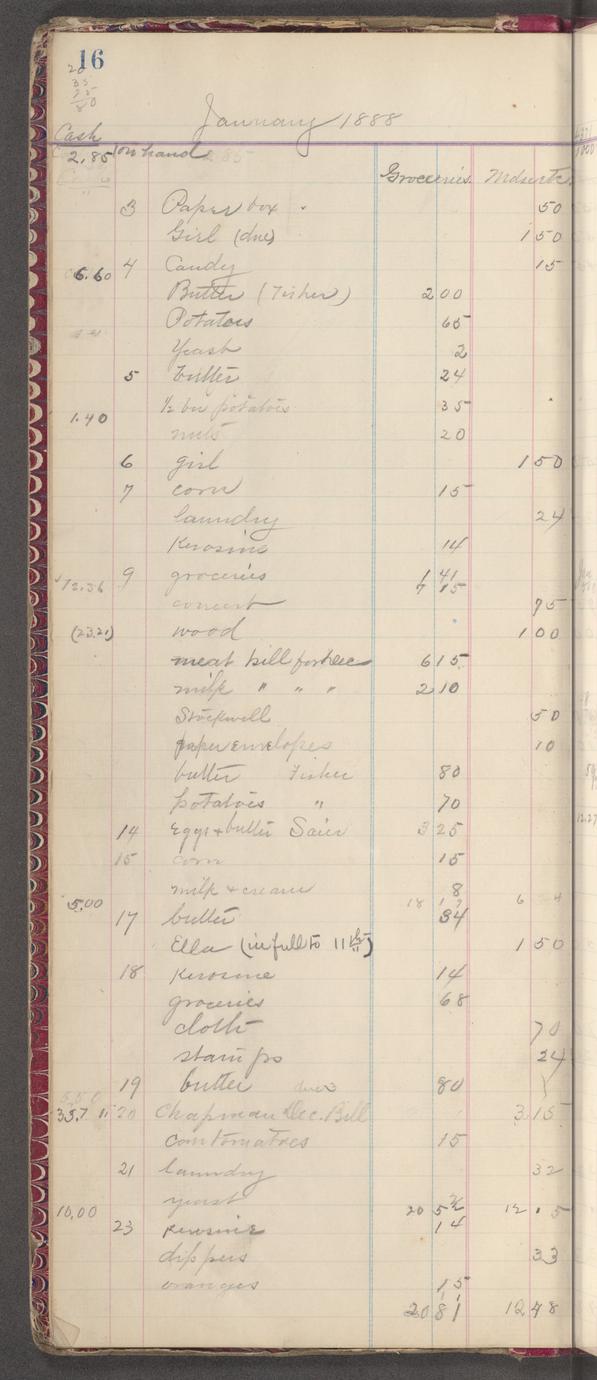 16
20
35
25
80
January 1888
Cash
2.85 on hand
Groceries Mdse etc
3 Paper box . 50
Girl (due) 1 50
6.60 4 Candy 15
Butter (Fisher) 2 00
Potatoes 65
Yeast 2
5 butter 24
1/2 bu potatoes 35
1.40
nuts 20
6 girl 1 50
7 corn 15
laundry 24
Kerosine 14
9 groceries 1 41
12.36 7 15
concert 75
(23.21) wood 1 00
meat bill for Dec 6 15
milk " " " 2 10
Stockwell 50
paper envelopes 10
butter Fisher 80
potatoes " 70
14 Eggs + butter Saier 3 25
15 corn 15
milk + cream 8
5.00
17 butter 34
Ella (in full to 11th) 1 50
18 Kerosine 14
groceries 68
cloth 70
stamps 24
19 butter 80
5.50
33.71 20 Chapman Dec. Bill 3 15
can tomatoes 15
21 laundry 32
yeast 2
10.00 20 5 12 . 5
23 Kerosine 14
dippers 33
oranges 15
20 81 12 48